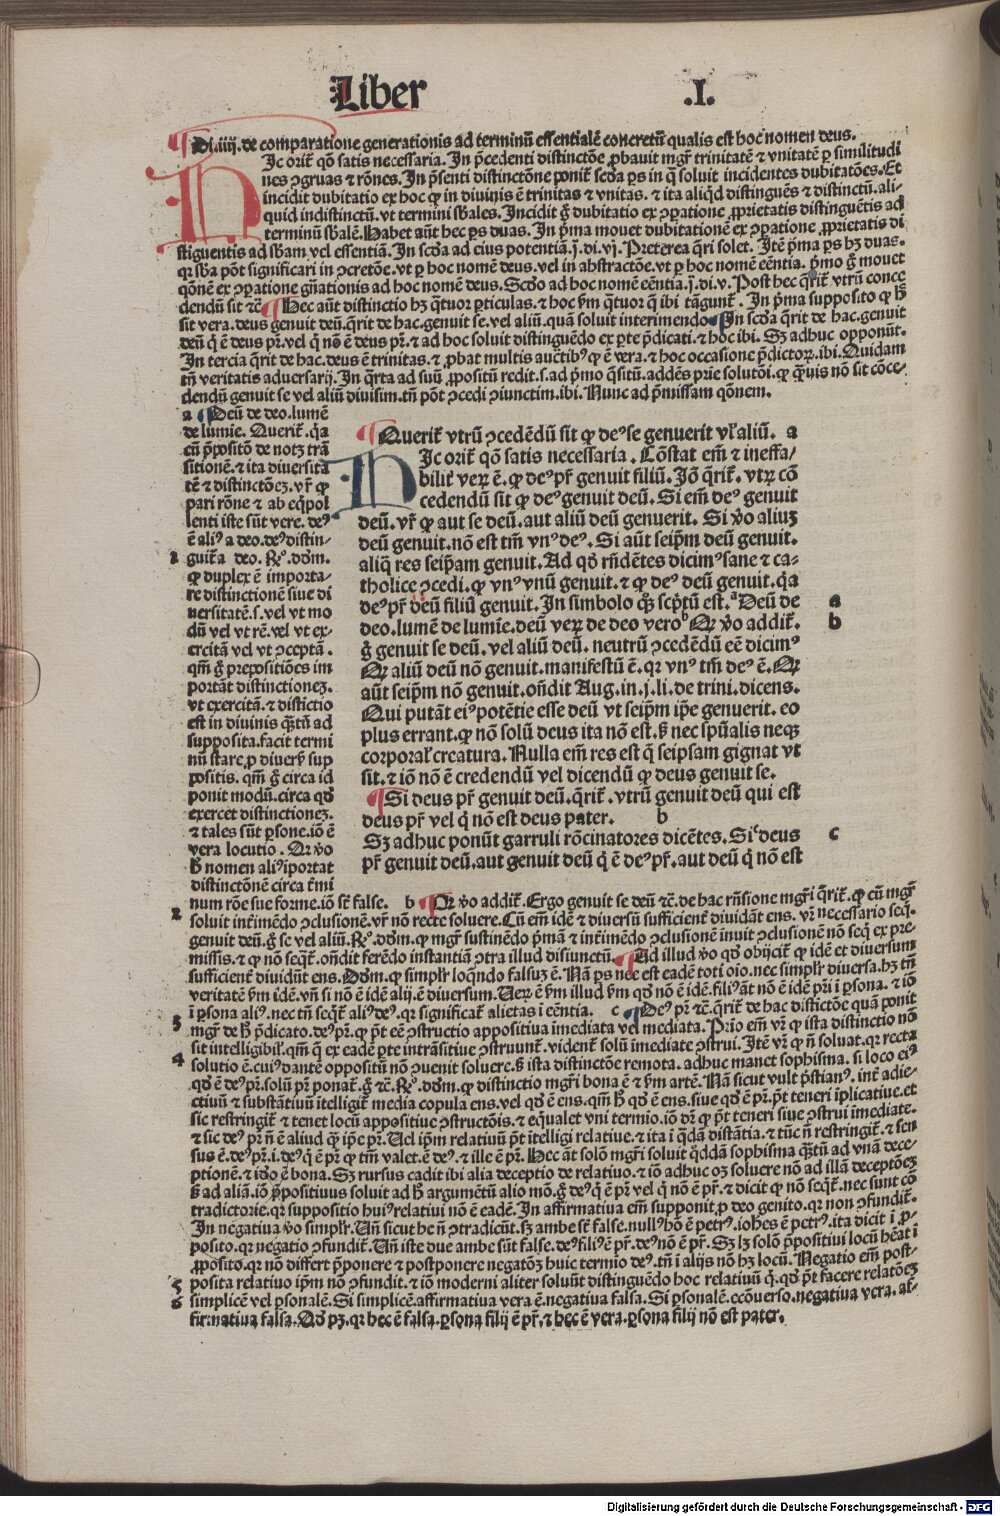 Liber .I.
Di.iiij. de comparatione generationis ad terminū essentialē concretū qualis est hoc nomen deus.
HIc orit᷑ qō satis necessaria. In p̄cedenti distinctōe ꝓbauit mgr̄ trinitatē ⁊ vnitatē ꝑ similitudi
nes ↄgruas ⁊ rōnes. In p̄senti distinctōne ponit᷑ scd̄a ps in q̄ soluit incidentes dubitatōes. Et
incidit dubitatio ex hoc ꝙ in diuinis ē trinitas ⁊ vnitas. ⁊ ita aliqd̄ distinguēs ⁊ distinctū. ali-
quid indistinctū. vt termini sb̄ales. Incidit g̊ dubitatio ex ↄꝑatione ꝓprietatis distinguētis ad
terminū sb̄alē. Habet aūt hec ps duas. In p̄ma mouet dubitationē ex ↄꝑatione ꝓprietatis di
stiguentis ad sb̄am vel essentiā. In scd̄a ad eius potentiā. j. di. vj. Preterea q̄ri solet. Itē p̄ma ps hꝫ duas.
qꝛ sb̄a pōt significari in ↄcretōe. vt ꝑ hoc nomē deus. vel in abstractōe. vt ꝑ hoc nomē eēntia. p̄mo g̊ mouet
qōnē ex ↄꝑatione gn̄ationis ad hoc nomē deus. Scd̄o ad hoc nomē eēntia. j. di. v. Post hec q̄rit᷑ vtrū conce
dendū sit ⁊c̄ ¶ Hec aūt distinctio hꝫ q̄tuor ꝑticulas. ⁊ hoc ẜm q̄tuor q̄ ibi tāgunt᷑. In p̄ma supposito ꝙ h̄
sit vera. deus genuit deū. q̄rit de hac. genuit se. vel aliū. quā soluit interimendo ¶ In scd̄a q̄rit de hac. genuit
deū q̄ ē deus pr̄. vel q̄ nō ē deus pr̄. ⁊ ad hoc soluit distinguēdo ex ꝑte p̄dicati. ⁊ hoc ibi. Sꝫ adhuc opponūt.
In tercia q̄rit de hac. deus ē trinitas. ⁊ ꝓbat multis auctibꝰ ꝙ ē vera. ⁊ hoc occasione p̄dictoꝝ. ibi. Quidam
tn̄ veritatis aduersarij. In q̄rta ad suū ꝓpositū redit. s. ad p̄mo q̄situ. addēs prie solutōi. ꝙ q̄uis nō sit cōce-
dendū genuit se vel aliū diuisim. tn̄ pōt ↄcedi ↄiunctim. ibi. Nunc ad p̄missam qōnem.
a ¶ Deū de deo. lumē
de lumie. Querit᷑. q̄a
cū p̄positō de notꝫ trā
sitionē. ⁊ ita diuersita
tē ⁊ distinctōeꝫ. vr̄ ꝙ
pari rōne ⁊ ab eq̄pol
lenti iste sūt vere. deꝰ
ē aliꝰ a deo. deꝰ distin-
guit᷑ a deo. Rꝰ. dōm.
ꝙ duplex ē importa-
re distinctionē siue di
uersitatē. s. vel vt mo
dū vel vt rē. vel vt ex-
ercitā vel vt ↄceptā.
qm̄ g̊ prepositiōes im
portāt distinctioneꝫ.
vt exercitā. ⁊ distictio
est in diuinis q̄tū ad
supposita. facit termi
nū stare ꝓ diuers̄ sup
positis. qm̄ g̊ circa id
ponit modū. circa qd̄
exercet distinctioneꝫ.
⁊ tales sūt ꝑsone. iō ē
vera locutio. Qꝛ v̊o
h̄ nomen aliꝰ iportat
distinctōnē circa t᷑mi
num rōe sue forme. iō sr̄ false.
¶ Querit᷑ vtrū ↄcedēdū sit ꝙ deꝰ se genuerit vl᷑ aliū. a
HIc orit᷑ qō satis necessaria. Cōstat em̄ ⁊ ineffa-
bilit᷑ veꝝ ē. ꝙ deꝰ pr̄ genuit filiū. Iō q̄rit᷑. vtꝝ cō
cedendū sit ꝙ deꝰ genuit deū. Si em̄ deꝰ genuit
deū. vr̄ ꝙ aut se deū. aut aliū deū genuerit. Si v̊o aliuꝫ
deū genuit. nō est tm̄ vnꝰ deꝰ. Si aūt seip̄m deū genuit.
aliq̄ res seip̄am genuit. Ad qd̄ rn̄dētes dicimꝰ sane ⁊ ca-
tholice ↄcedi. ꝙ vnꝰ vnū genuit. ⁊ ꝙ deꝰ deū genuit. q̄a
deꝰ pr̄ deū filiū genuit. In simbolo q̄ꝫ sc̄ptū est. Deū de
deo. lumē de lumīe. deū veꝝ de deo vero Qꝛ v̊o addit᷑.
g̊ genuit se deū. vel aliū deū. neutrū ↄcedēdū eē dicimꝰ
Qꝛ aliū deū nō genuit. manifestū ē. qꝛ vnꝰ tm̄ deꝰ ē. Qꝛ
aūt seip̄m nō genuit. on̄dit Aug. in. j. li. de trini. dicens.
Qui putāt eiꝰ potētie esse deū vt seip̄m ip̄e genuerit. eo
plus errant. ꝙ nō solū deus ita nō est. ẜ nec spūalis neqꝫ
corporal᷑ creatura. Nulla em̄ res est q̄ seipsam gignat vt
sit. ⁊ iō nō ē credendū vel dicendū ꝙ deus genuit se.
¶ Si deus pr̄ genuit deū. q̄rit᷑. vtrū genuit deū qui est
deus pr̄ vel q̄ nō est deus pater. b
Sꝫ adhuc ponūt garruli rōcinatores dicētes. Si deus
pr̄ genuit deū. aut genuit deū q̄ ē deꝰ pr̄. aut deū q̄ nō est
a
b
c
b ¶ Qꝛ v̊o addit᷑. Ergo genuit se deū ⁊c̄. de hac rn̄sione mgr̄i q̄rit᷑. ꝙ cū mgr̄
soluit int᷑imēdo ↄclusionē. vr̄ nō recte soluere. Cū em̄ idē ⁊ diuersū sufficient᷑ diuidāt ens. vr̄ necessario seq̄.
genuit deū. g̊ se vel aliū. Rꝰ. dōm. ꝙ mgr̄ sustinēdo p̄mā ⁊ int᷑imēdo ↄclusionē inuit ↄclusionē nō seq̄ ex pre
missis. ⁊ ꝙ nō seq̄t᷑. on̄dit ferēdo instantiā ↄtra illud disiunctū. ¶ Ad illud v̊o qd̄ obijcit᷑ ꝙ idē et diuersum
sufficient᷑ diuidūt ens. Dōm. ꝙ simpl᷑r loq̄ndo falsuꝫ ē. Nā ps nec est eadē toti oio. nec simpl᷑r diuersa. hꝫ tn̄
veritatē ẜm idē. vn̄ si nō ē idē alij. ē diuersum. Veꝝ ē ẜm illud ẜm qd̄ nō ē idē. filiꝰ āt nō ē idē pr̄i ī ꝑsona. ⁊ iō
ī ꝑsona aliꝰ. nec tn̄ seq̄t᷑ aliꝰ deꝰ. qꝛ significat᷑ alietas ī eēntia. c ¶ Deꝰ pr̄ ⁊c̄. q̄rit᷑ de hac distictōe quā ponit
mgr̄ de h̄ p̄dicato. deꝰ pr̄. ꝙ pōt eē ↄstructio appositiua īmediata vel mediata. Prio em̄ vr̄ ꝙ ista distinctio nō
sit intelligibil᷑. qm̄ q̄ ex eadē ꝑte intrāsitiue ↄstruunt᷑. vident᷑ solū īmediate ↄstrui. Itē vr̄ ꝙ n̄ soluat. qꝛ recta
solutio ē. cuiꝰ dante oppositū nō ↄuenit soluere. ẜ ista distinctōe remota. adhuc manet sophisma. si loco eiꝰ
qd̄ ē deꝰ pr̄. solū pr̄ ponat᷑. g̊ ⁊c̄. Rꝰ. dōm. ꝙ distinctio mgr̄i bona ē ⁊ ẜm artē. Nā sicut vult p̄stianꝰ. int᷑ adie-
ctiuū ⁊ substātiuū ītelligit᷑ media copula ens. vel qd̄ ē ens. qm̄ h̄ qd̄ ē ens. siue qd̄ ē pr̄. pōt teneri īplicatiue. et
sic restringit᷑ ⁊ tenet locū appositiue ↄstructōis. ⁊ eq̄ualet vni termio. iō dr̄ ꝙ pōt teneri siue ↄstrui īmediate.
⁊ sic deꝰ pr̄ n̄ ē aliud q̄ ip̄e pr̄. Uel ip̄m relatiuū pōt ītelligi relatiue. ⁊ ita ī q̄dā distātia. ⁊ tūc n̄ restringit᷑. ⁊ sen
sus ē. deꝰ pr̄. i. deꝰ q̄ ē pr̄ ꝙ tm̄ valet. ē deꝰ. ⁊ ille ē pr̄. Hec āt solō mgr̄i soluit q̄ddā sophisma q̄tū ad vnā dece-
ptionē. ⁊ id̄o ē bona. Sꝫ rursus cadit ibi alia deceptio de relatiuo. ⁊ iō adhuc oꝫ soluere nō ad illā deceptōeꝫ
ẜ ad aliā. iō p̄positiuus soluit ad h̄ argumētū alio mō. g̊ deꝰ q̄ ē pr̄ vel q̄ nō ē pr̄. ⁊ dicit ꝙ nō seq̄t᷑. nec sunt cō
tradictorie. qꝛ suppositio huiꝰ relatiui nō ē eadē. In affirmatiua em̄ supponit ꝓ deo genito. qꝛ non ↄfundit᷑.
In negatiua v̊o simpl᷑r. Un̄ sicut he n̄ ↄtradicūt. sꝫ ambe sr̄ false. nullꝰ hō ē petrꝰ. iohēs ē petrꝰ. ita dicit ī ꝓ-
posito. qꝛ negatio ↄfundit᷑. Un̄ iste due ambe sūt false. deꝰ filiꝰ ē pr̄. deꝰ nō ē pr̄. Sꝫ lꝫ solō p̄positiui locū hēat ī
ꝓposito. qꝛ nō differt p̄ponere ⁊ postponere negatōꝫ huic termio deꝰ. tn̄ ī alijs nō hꝫ locū. Negatio em̄ post-
posita relatiuo ip̄m nō ↄfundit. ⁊ iō moderni aliter soluūt distinguēdo hoc relatiuū q̄. qd̄ pōt facere relatōeꝫ
simplicē vel ꝑsonalē. Si simplicē. affirmatiua vera ē. negatiua falsa. Si ꝑsonalē. ecōuerso. negatiua vera. af-
firmatiua falsa. Qd̄ pꝫ. qꝛ hec ē falsa. ꝑsona filij ē pr̄. ⁊ hec ē vera. ꝑsona filij nō est pater.
1
2
3
4
5
6
Digitalisierung gefördert durch die Deutsche Forschungsgemeinschaft - DFG